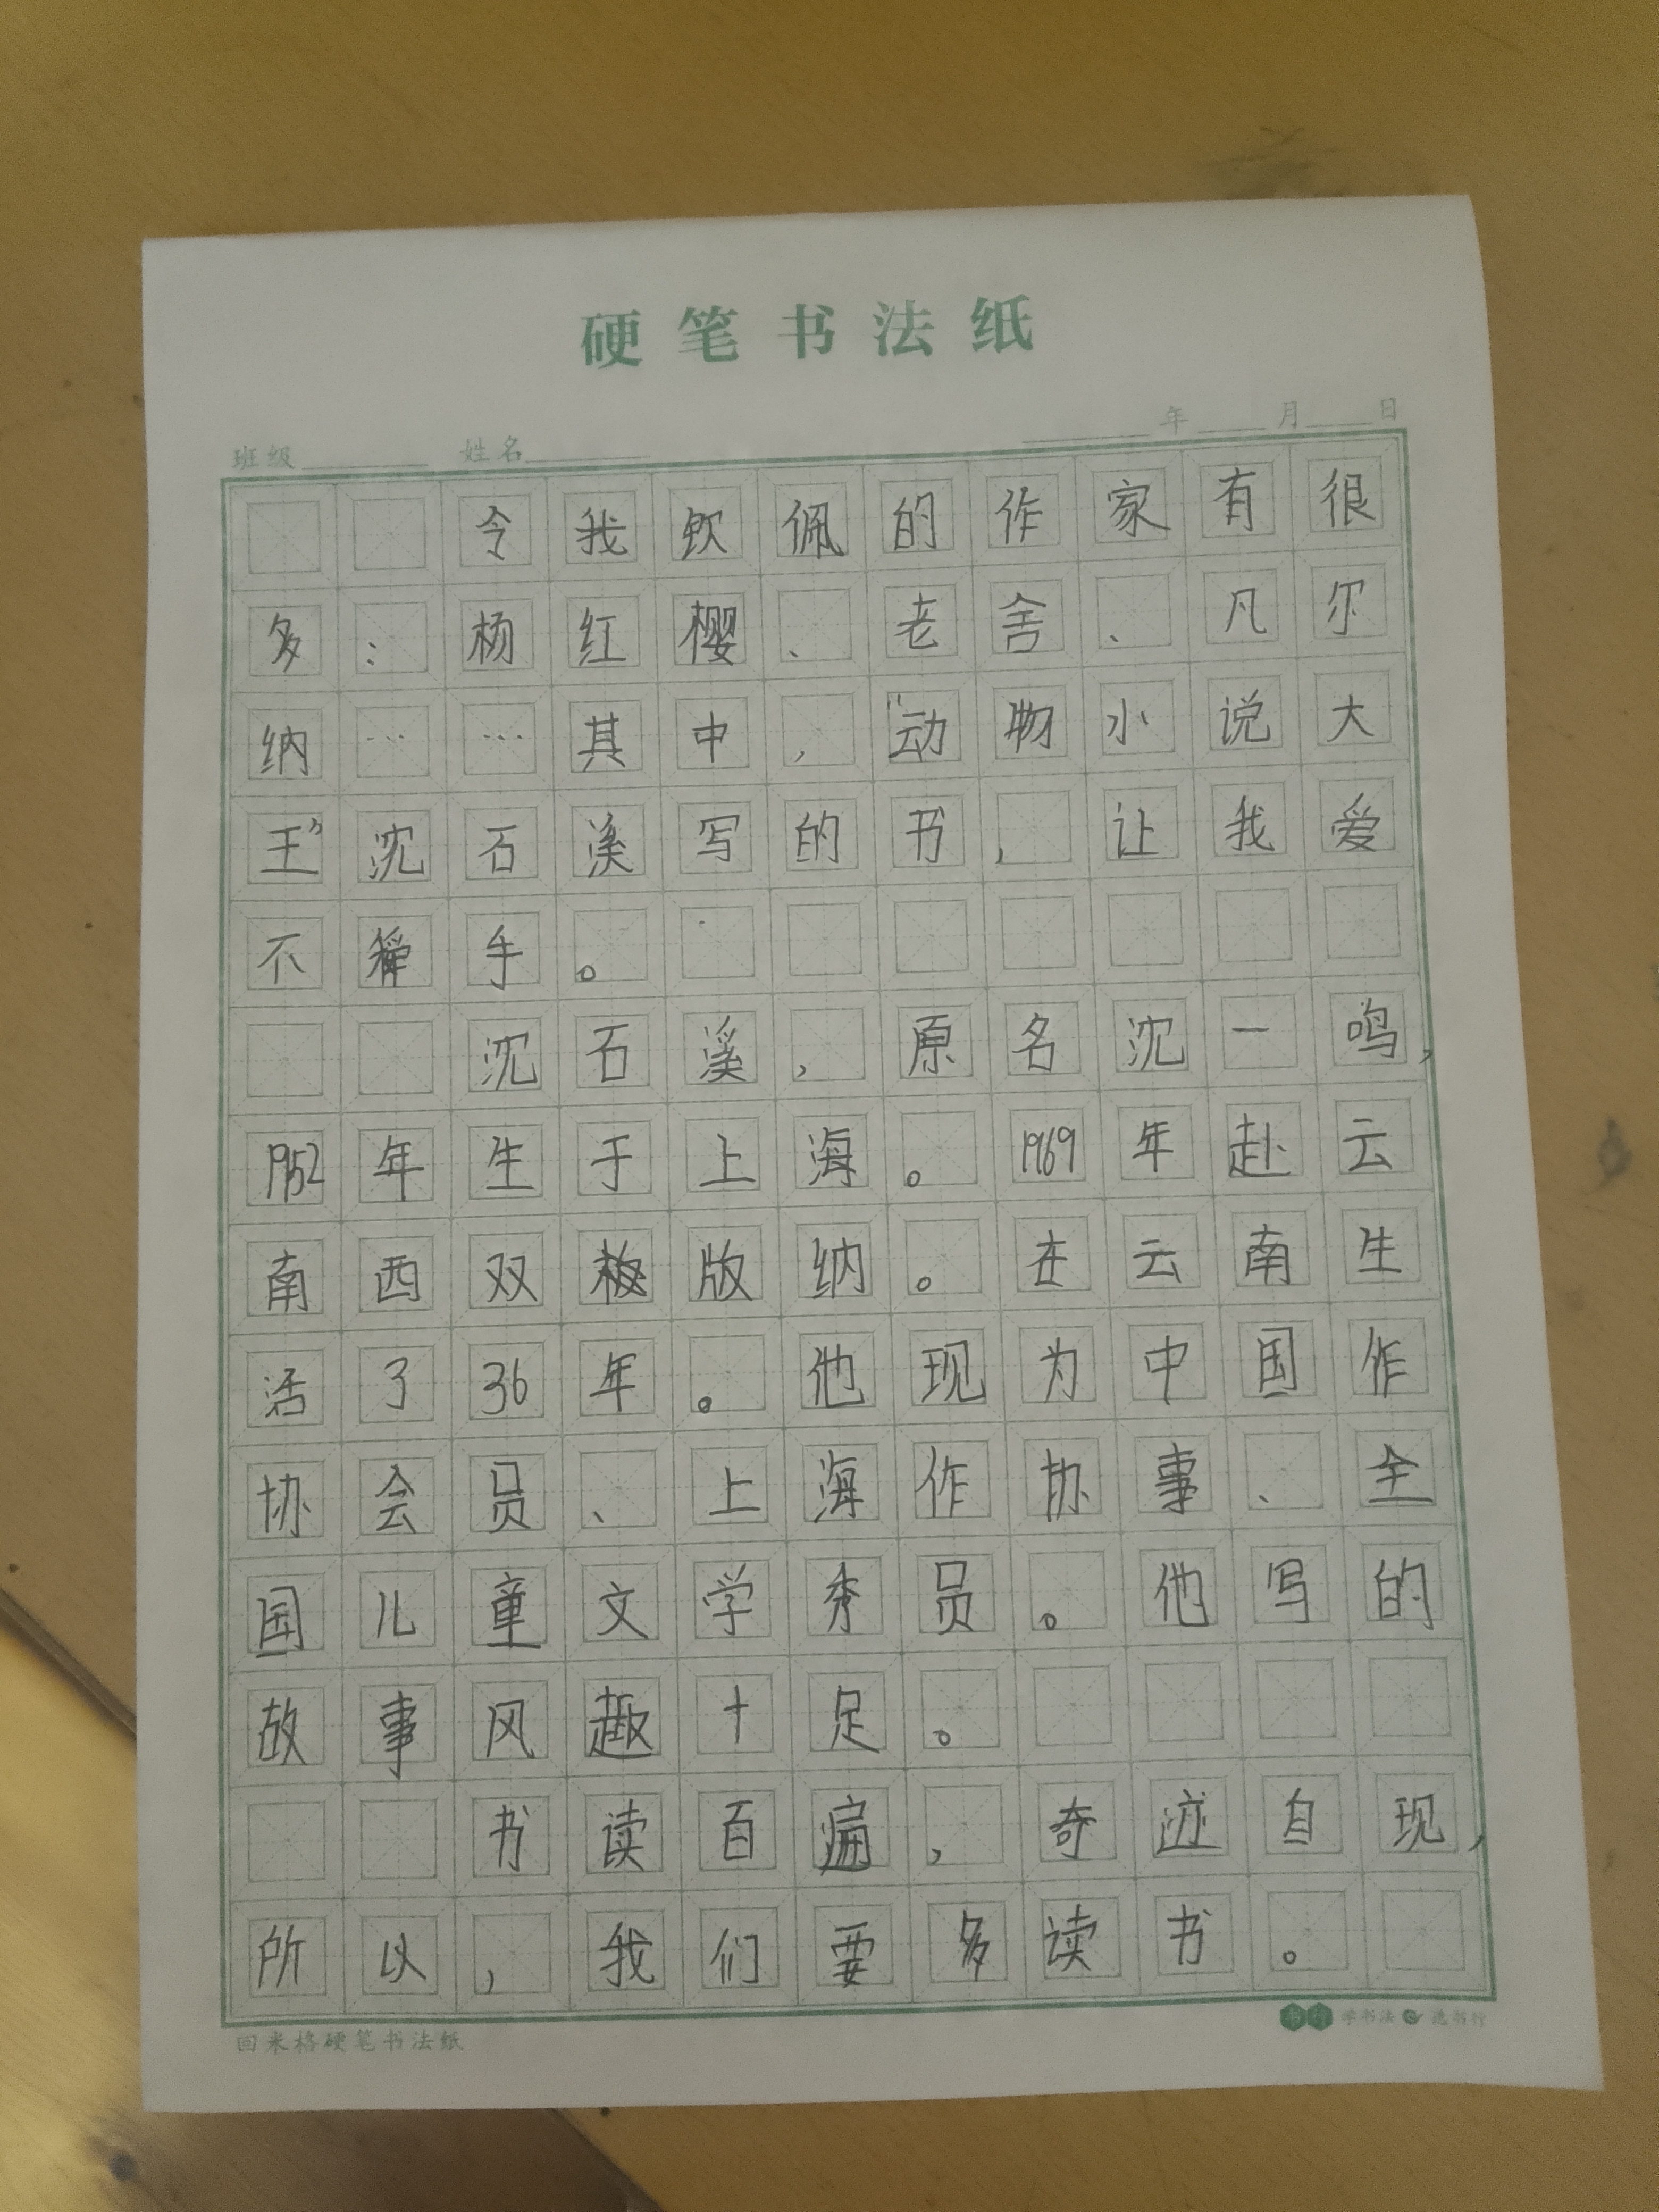 硬笔书法纸
班级 姓名 年 月 日
令我钦佩的作家有很
多：杨红樱、老舍、凡尔
纳……其中，“动物小说大
王”沈石溪写的书，让我爱
不释手。
沈石溪，原名沈一鸣，
1952年生于上海。1969年赴云
南西双版纳。在云南生
活了36年。他现为中国作
协会员、上海作协事、全
国儿童文学秀员。他写的
故事风趣十足。
书读百遍，奇迹自现，
所以，我们要多读书。
回米格硬笔书法纸 学书法 选书行